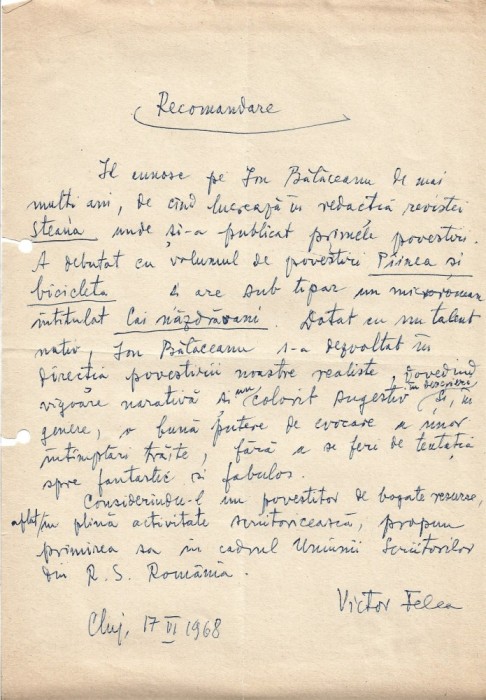 Recomandare
Il cunosc pe Ion Bătăceanu de mai
mulți ani, de cînd lucrează în redacția revistei
Steaua unde și-a publicat primele povestiri.
A debutat cu volumul de povestiri Pîinea și
bicicleta și are sub tipar un microroman
intitulat Cai năzdrăvani. Dotat cu un talent
nativ, Ion Bătăceanu s-a dezvoltat în
direcția povestirii noastre realiste, dovedind
vigoare narativă și un colorit sugestiv în descrieri și, în
genere, o bună putere de evocare a unor
întîmplări trăite, fără a se feri de tentația
spre fantastic și fabulos.
Considerindu-l un povestitor de bogate resurse,
aflat în plină activitate scriitoricească, propun
primirea sa în cadrul Uniunii Scriitorilor
din R. S. România.
Victor Felea
Cluj, 17 VI 1968